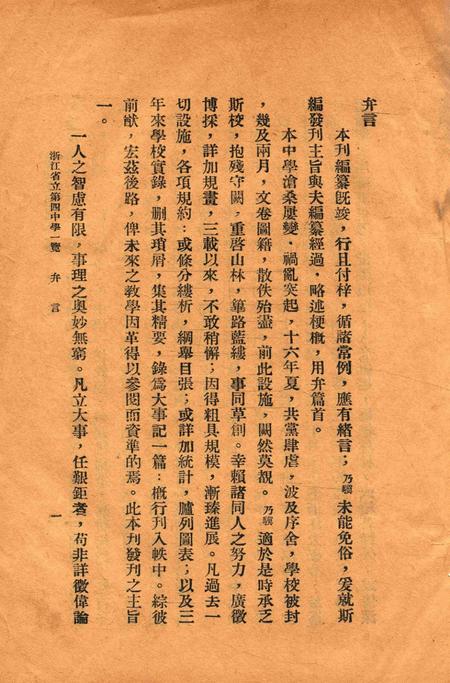 弁言
本刊編纂既竣，行且付梓，循諸常例，應有緒言；乃驥未能免俗，爰就斯
編發刊主旨與夫編纂經過，略述梗概，用弁篇首。
本中學滄桑屢變，禍亂突起，十六年夏，共黨肆虐，波及序舍，學校被封
，幾及兩月，文卷圖籍，散佚殆盡，前此設施，闃然莫覩。乃驥適於是時承乏
斯校，抱殘守闕，重啓山林，篳路藍縷，事同草創。幸賴諸同人之努力，廣徵
博採，詳加規畫，三載以來，不敢稍懈；因得粗具規模，漸臻進展。凡過去一
切設施，各項規約：或條分縷析，綱舉目張；或詳加統計，臚列圖表；以及三
年來學校實錄，删其瑣屑，集其精要，錄爲大事記一篇：概行刊入帙中。綜彼
前猷，宏茲後路，俾未來之教學因革得以參閱而資準的焉。此本刊發刊之主旨
一。
一人之智慮有限，事理之奧妙無窮。凡立大事，任艱鉅者，苟非詳徵偉論
浙江省立第四中學一覽 弁言 一